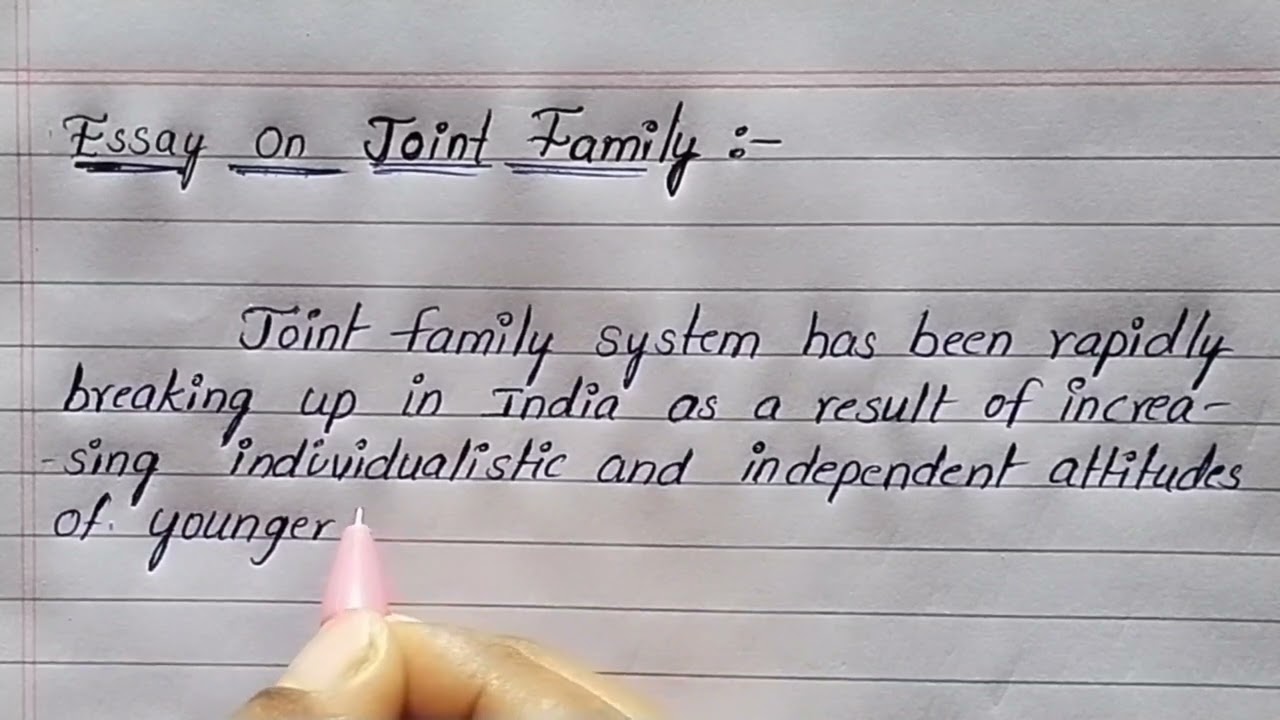 Essay on Joint Family :-
Joint family system has been rapidly
breaking up in India as a result of increa-
-sing individualistic and independent attitudes
of younger